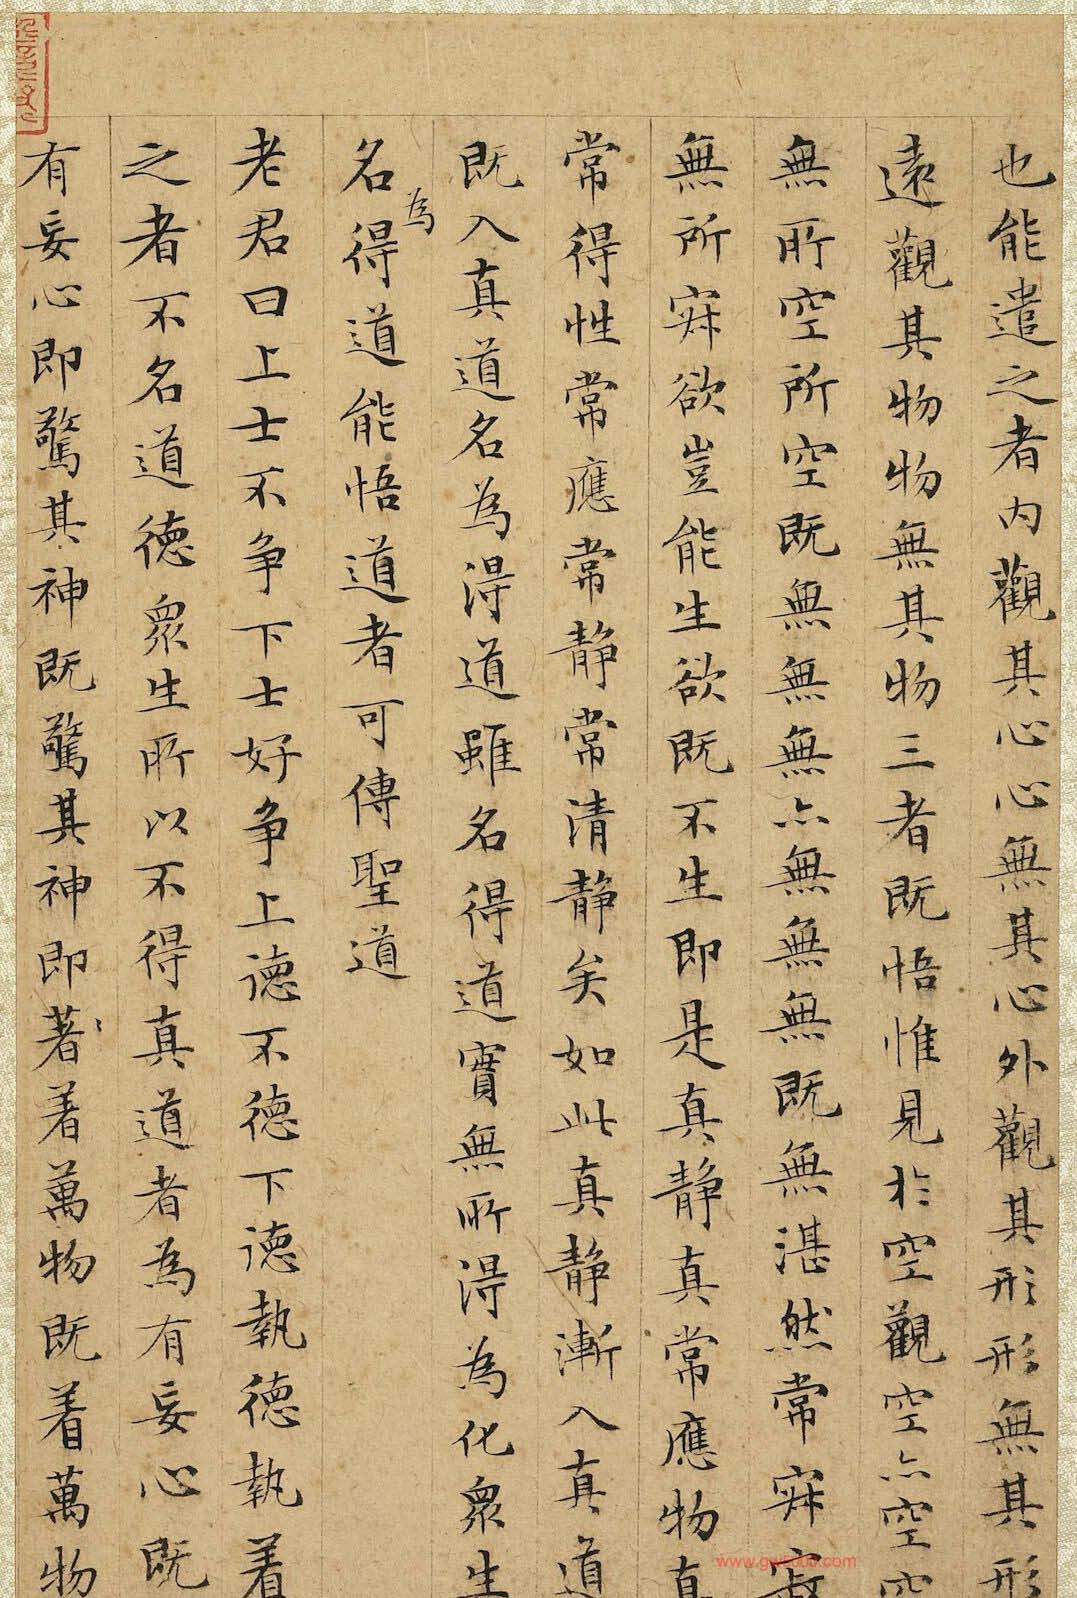 也能遣之者内觀其心心無其心外觀其形形無其形
遠觀其物物無其物三者既悟惟見於空觀空亦空空
無所空所空既無無無亦無無無既無湛然常寂寂
無所寂欲豈能生欲既不生即是真静真常應物真
常得性常應常静常清静矣如此真静漸入真道
既入真道名為得道雖名得道實無所得為化衆生
名為得道能悟道者可傳聖道
老君曰上士不争下士好争上德不德下德執德執着
之者不名道德衆生所以不得真道者為有妄心既
有妄心即驚其神既驚其神即著着萬物既着萬物